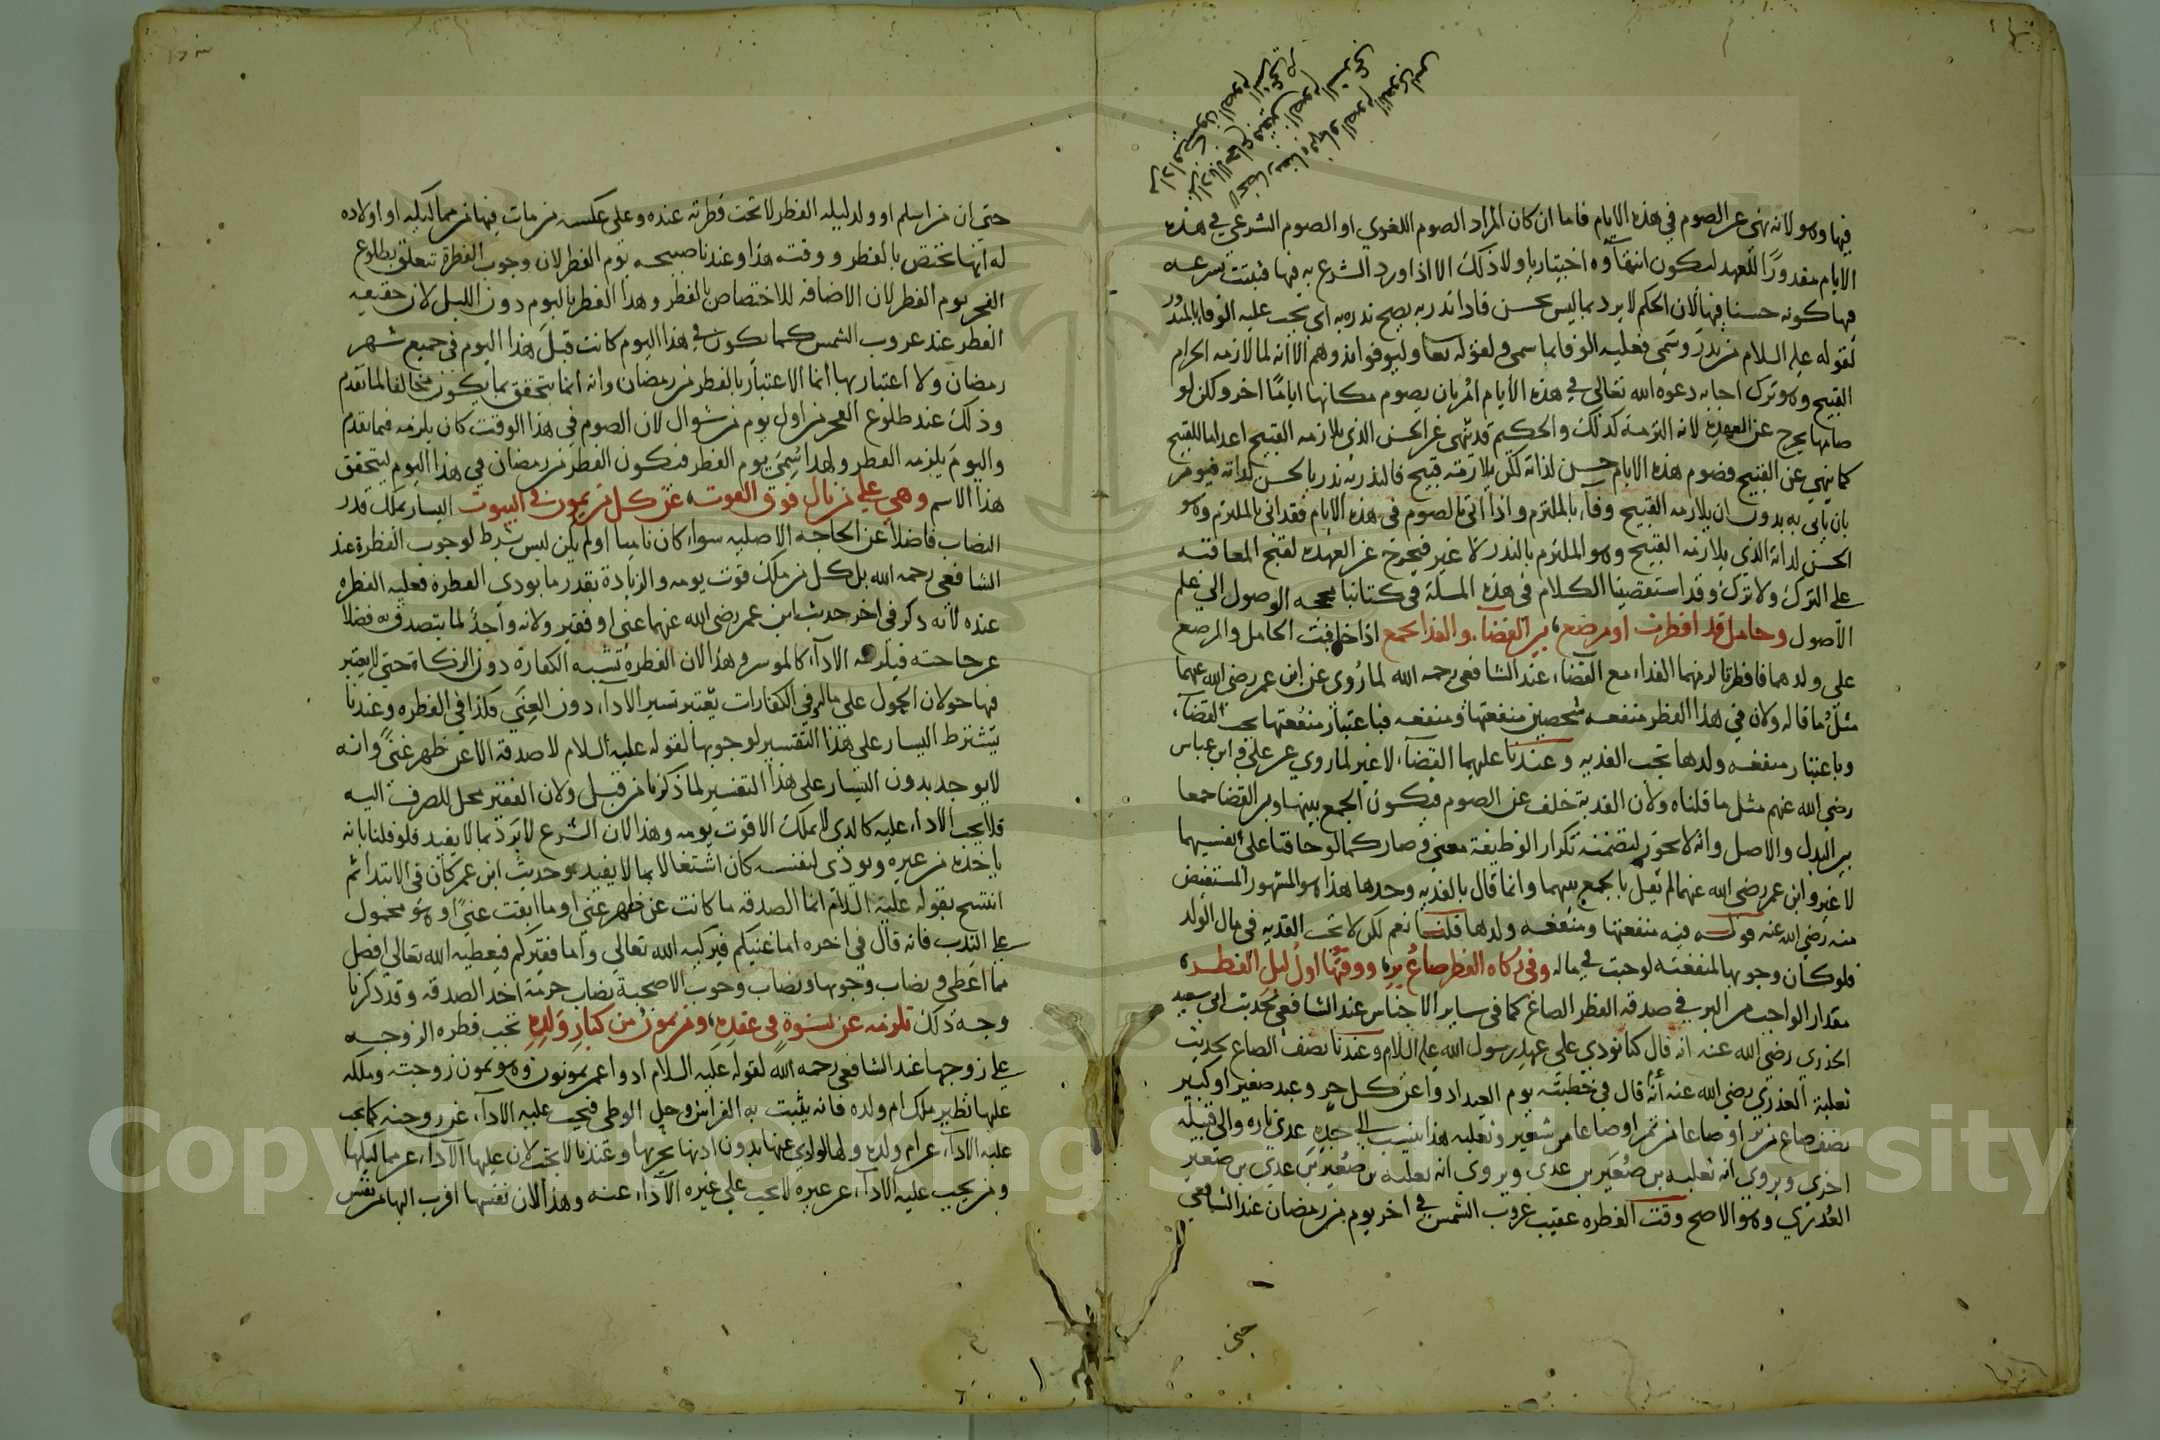 فيها وهو لانه نهى عن الصوم في هذه الايام فاما ان كان المراد الصوم اللغوي او الصوم الشرعي في هذه
الايام مقدورًا للعبد ليكون انتهاؤه اختياريا ولا ذلك الا اذا ورد الشرع به فيها فثبتت شرعيته
فيها كونه حسنا فيها لان الحكم لا يرد بما ليس بحسن فاذا نذر به يصح نذره به اي تجب عليه الوفا بالمنذور
لقوله عليه السلام من نذر وسمى فعليه الوفا بما سمى ولقوله تعا وليوفوا نذورهم الا انه لما لازمه الحرام
القبيح وهو ترك اجابه دعوه الله تعالى في هذه الايام امر بان يصوم مكانها اياما اخر ولكن لو
صامها يخرج عن العهدة لانه التزمه كذلك والحكيم قد ينهى عن الحسن الذي يلازمه القبيح اعداما للقبيح
كما ينهى عن القبيح فصوم هذه الايام حسن لذاته لكن يلازمه قبيح فالنذر به نذر بالحسن لذاته فيومر
بان ياتي به بدون ان يلازمه القبيح وفاء بالملتزم واذا اتى بالصوم في هذه الايام فقد اتى بالملتزم وهو
الحسن لذاته الذي يلازمه القبيح وهو الملتزم بالنذر لا غير فيخرج عن العهدة لقبح المعاقبه
على الترك ولا ترك وقد استقصينا الكلام في هذه المسلة في كتابنا الوصول الى علم
الاصول وحامل قد افطرت او مرضع بين القضاء والفدا يجمع اذا خافت الحامل والمرضع
على ولدهما فافطرتا لزمهما الفداء مع القضاء عند الشافعي رحمه الله لما روي عن ابن عمر رضي الله عنهما
مثل ما قاله ولان في هذا الفطر منفعه شخصين منفعتها ومنفعه فباعتبار منفعتها يجب القضاء
وباعتبار منفعه ولدها تجب الفديه وعندنا عليهما القضاء لا غير لما روي عن علي وابن عباس
رضي الله عنهم مثل ما قلناه ولان الفدية خلف عن الصوم فيكون الجمع بينها وبين القضا جمعا
بين البدل والاصل وانه لا يجوز لتضمنه تكرار الوظيفة معنى وصار كما لو خافتا على نفسيهما
لا غير وابن عمر رضي الله عنهما لم يقل بالجمع بينهما وانما قال بالفديه وحدها هذا هو المشهور المستفيض
منه رضي الله عنه قوله فيه منفعتها ومنفعه ولدها قلنا نعم لكن لا تجب الفديه في مال الولد
فلو كان وجوبها لمنفعته لوجبت في ماله وفي زكاه الفطر صاع بر ووقتها اول ليل الفطر
مقدار الواجب من البر في صدقه الفطر الصاع كما في ساير الاجناس عند الشافعي لحديث ابي سعيد
الخدري رضي الله عنه انه قال كنا نودي على عهد رسول الله عليه السلام وعندنا نصف الصاع لحديث
ثعلبة العذري رضي الله عنه انه قال في خطبته يوم العيد ادوا عن كل حر وعبد صغير او كبير
نصف صاع من بر او صاعا من تمر او صاعا من شعير وثعلبه هذا ينسب الى جده عدي تاره والى قبيله
اخرى ويروى انه ثعلبه بن صعير بن عدي ويروى انه ثعلبه بن صعير عدي بن صعير
العذري وهو الاصح وقت الفطره عقيب غروب الشمس في اخر يوم من رمضان عند الشافعي
حتى
حتى ان من اسلم او ولد ليله الفطر لا تجب فطرته عنده وعلى عكسه من مات فيها من مماليكه او اولاده
له انها تختص بالفطر ووقته هذا وعندنا صبيحه يوم الفطر لان وجوب الفطرة تتعلق بطلوع
الفجر يوم الفطر لان الاضافه للاختصاص بالفطر وهذا الفطر باليوم دون الليل لان حقيقه
الفطر عند غروب الشمس كما يكون في هذا اليوم كانت قبل هذا اليوم في جميع شهر
رمضان ولا اعتبار بها انما الاعتبار بالفطر من رمضان وانه انما يتحقق بما يكون مخالفا لما تقدم
وذلك عند طلوع الفجر من اول يوم من شوال لان الصوم في هذا الوقت كان يلزمه فيما تقدم
واليوم يلزمه الفطر ولهذا سمي يوم الفطر فيكون الفطر من رمضان في هذا اليوم ليتحقق
هذا الاسم وهي على من نال فوق القوت عن كل من يمون في البيوت اليسار بملك قدر
النصاب فاضلا عن الحاجه الاصليه سواء كان ناميا او لم يكن ليس شرط لوجوب الفطرة عند
الشافعي رحمه الله بل كل من ملك قوت يومه والزيادة بقدر ما يودي الفطرة فعليه الفطره
عنده لانه ذكر في اخر حديث ابن عمر رضي الله عنهما غني او فقير ولانه واجد لما يتصدق به فضلا
عن حاجته فيلزمه الاداء كالموسر وهذا لان الفطرة تشبه الكفارة دون الزكاة حتى لا يعتبر
فيها حولان الحول على مال وفي الكفارات يعتبر تيسير الاداء دون الغنى فكذا في الفطره وعندنا
يشترط اليسار على هذا التفسير لوجوبها لقوله عليه السلام لا صدقة الا عن ظهر غنى وانه
لا يوجد بدون اليسار على هذا التفسير لما ذكرنا من قبل ولان الفقير محل للصرف اليه
فلا يجب الاداء عليه كالذي لا يملك الا قوت يومه وهذا لان الشرع لا يرد بما لا يفيد فلو قلنا بانه
ياخذه من غيره ويودي لنفسه كان اشتغالا بما لا يفيد وحديث ابن عمر كان في الابتدا ثم
انتسخ بقوله عليه السلام انما الصدقه ما كانت عن ظهر غنى او ما ابقت غنى او هو محمول
على الندب فانه قال في اخره اما غنيكم فيزكيه الله تعالى واما فقيركم فيعطيه الله تعالى افضل
مما اعطى ونصاب وجوبها ونصاب وجوب الاضحية نصاب حرمة اخذ الصدقه وقد ذكرنا
وجه ذلك تلزمه عن نسوة في عقده ومن يمون من كبار ولده تجب فطره الزوجه
على زوجها عند الشافعي رحمه الله لقوله عليه السلام ادوا عمن تمونون وهو يمون زوجته وملكه
عليها نظير ملك ام ولده فانه يثبت به الفراش وحل الوطي فيجب عليه الاداء عن زوجته كما يجب
عليه الاداء عن ام ولده ولها لو ادى عنها بدون اذنها يجزيها وعندنا لا تجب لان عليها الاداء عن مماليكها
ومن يجب عليه الاداء عن غيره لا يجب على غيره الاداء عنه وهذا لان نفسها اقرب اليها من نفس
Copyright © King Saud University